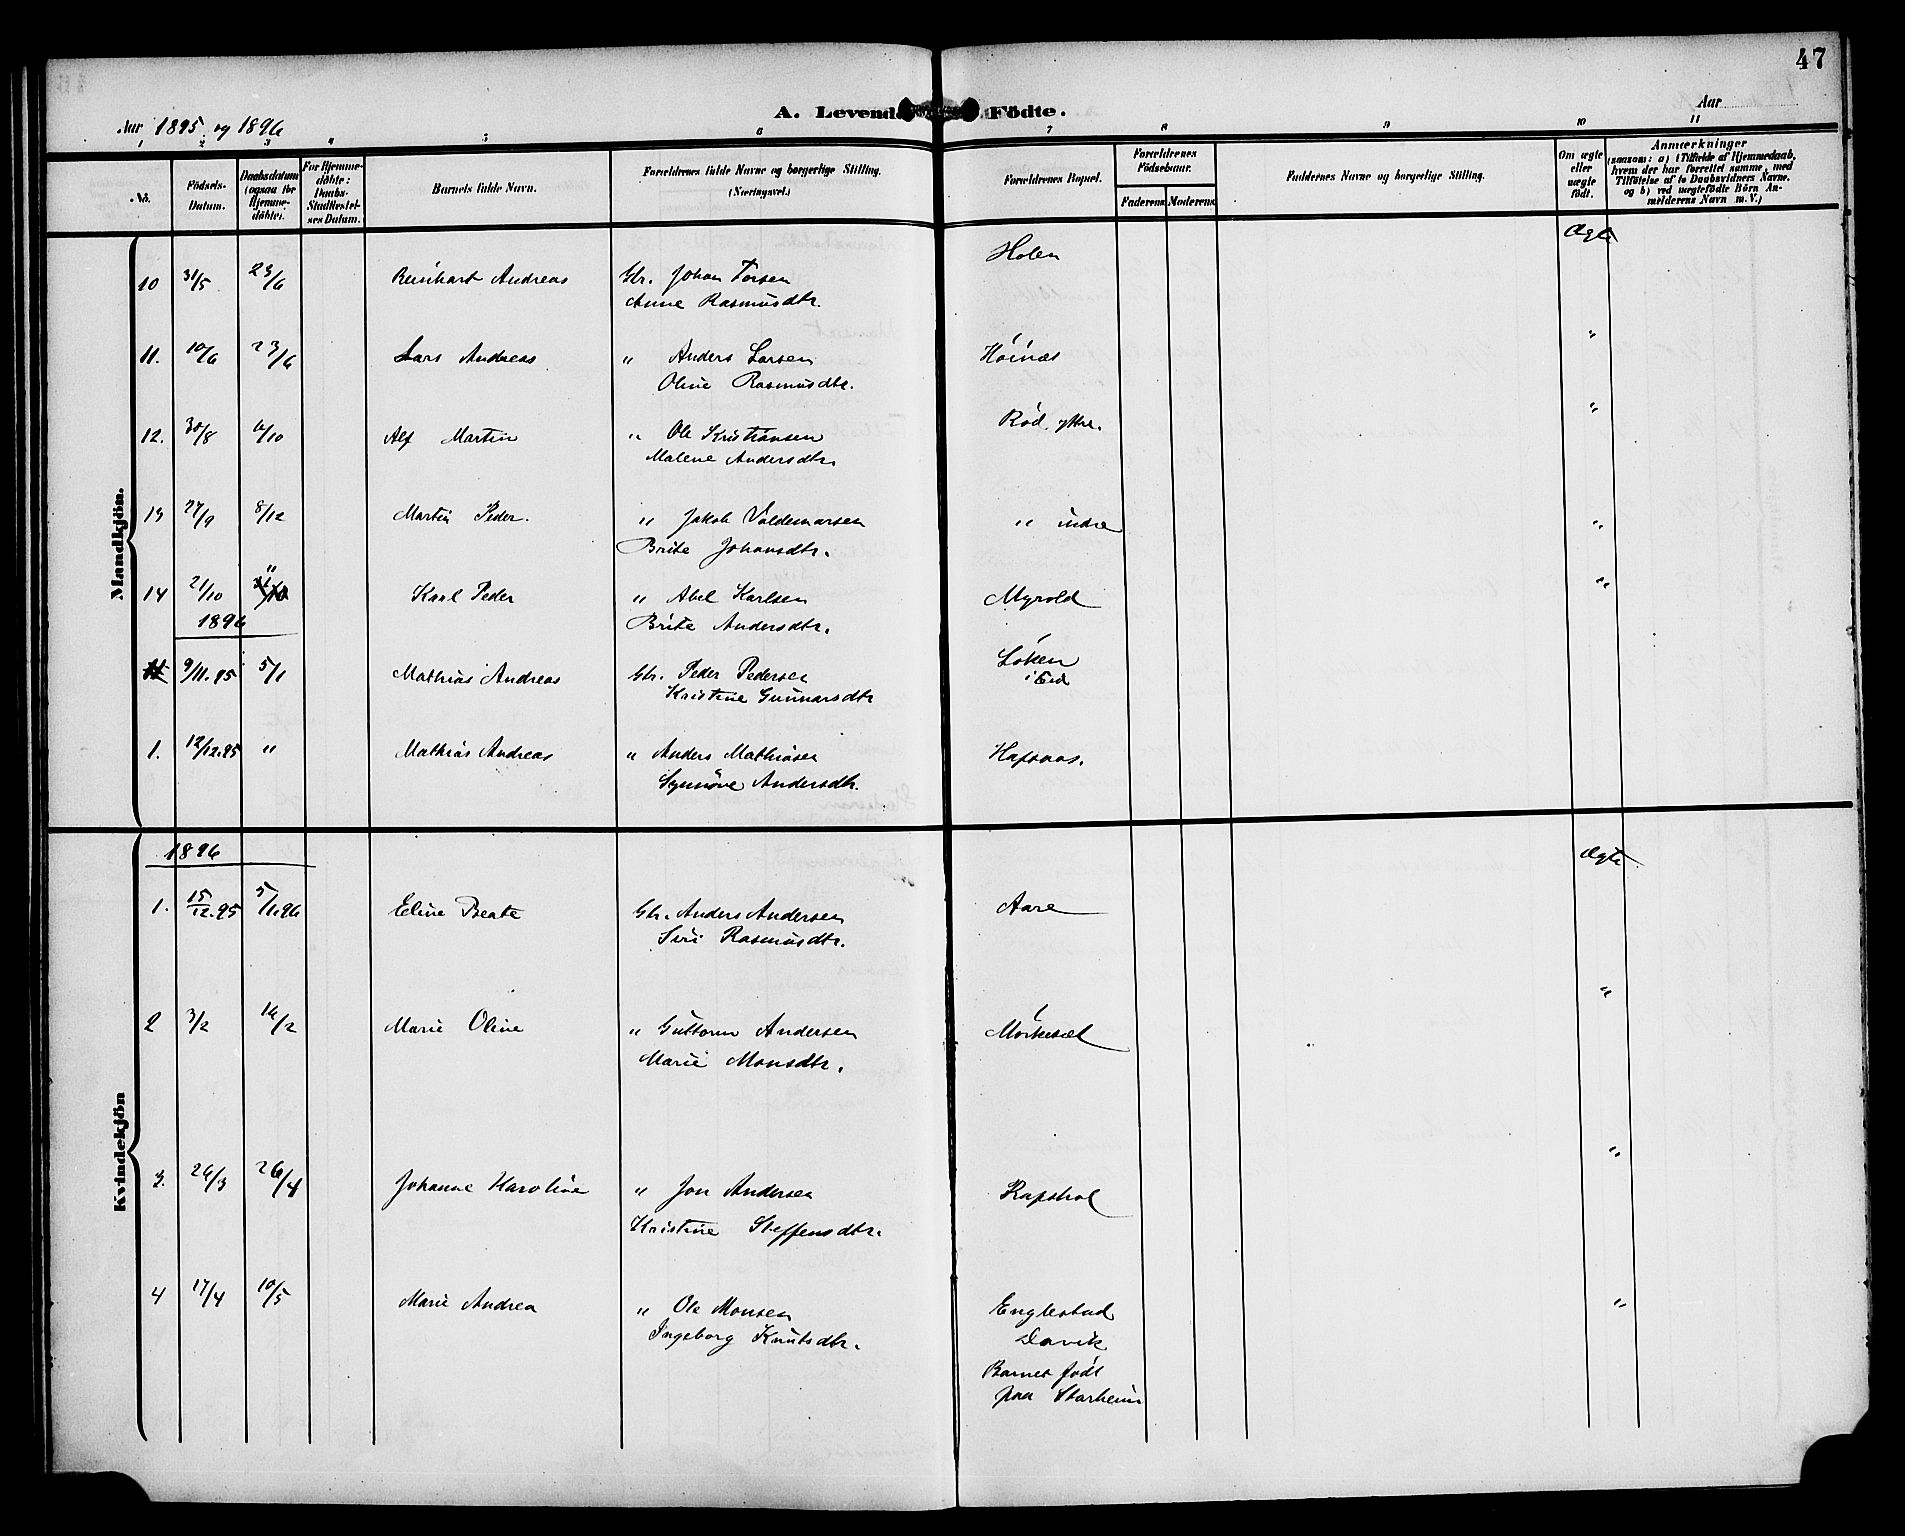 47
A. Levende Födte.
Aar 1895 og 1896
Aar
1 2 3 4 5 6 7 8 9 10 11
No.
Födsels-Datum.
Daabsdatum (ogsaa for Hjemme-döbte).
For Hjemme-döbte: Daabs-Stadfæstel-ses Datum.
Barnets fulde Navn.
Forældrenes fulde Navne og borgerlige Stilling. (Næringsvei.)
Forældrenes Bopæl.
Forældrenes Födselsaar.
Faderens Moderens
Faddernes Navne og borgerlige Stilling.
Om ægte eller uægte födt.
Anmærkninger (saasom: a) i Tilfælde af Hjemmedaab, hvem der har forrettet samme, med Tilföielse af to Daabsvidners Navne, og b) ved uægtefödte Börn Anmelderens Navn m. V.)
Mandkjön.
10 31/5 23/6 Reinhart Andreas Gbr. Johan Torsen Holen Ægte
Anne Rasmusdtr.
11. 10/6 23/6 Lars Andreas " Anders Larsen Höinæs "
Oline Rasmusdtr.
12. 30/8 6/10 Alf Martin " Ole Kristiansen Röd, ytre. "
Malene Andersdtr.
13 27/9 8/12 Martin Peder. " Jakob Valdemarsen " indre "
Brite Johansdtr.
14 21/10 " Karl Peder " Abel Karlsen Myrold "
1896 Brite Andersdtr.
9/11.95 5/1 Mathias Andreas Gbr. Peder Pedersen Löken
Kristine Gunnarsdtr i Eid
1. 12/12.95 " Mathias Andreas " Anders Mathiasen Hafsaas.
Synnöve Andersdtr.
Kvindekjön
1896 Ægte
1. 15/12.95 5/1.96 Eline Beate Gbr. Anders Andersen Aare
Siri Rasmusdtr.
2 3/2 16/2 Marie Oline " Guttorm Andersen Mörkesæt "
Marie Monsdtr.
3. 26/3 26/4 Johanne Karoline " Jon Andersen "
Kristine Steffensdtr.
4 17/4 10/5 Marie Andrea " Ole Monsen Englestad "
Ingeborg Knutsdtr. Davik
Barnet födt
paa Starheim